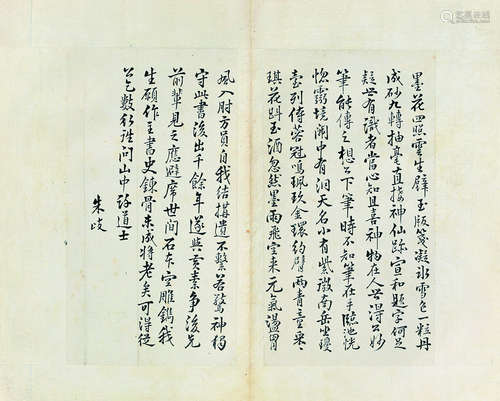 墨花四照雲生壁玉版箋凝冰雪色一粒丹
成砂九轉抽毫直接神仙跡宣和題字何足
疑世有識者當心知且喜神物在人世得公妙
筆能傳之想公下筆時不知筆在手臨池恍
惚靈境開中有洞天名小有紫微南岳坐瓊
臺列侍蓉冠鳴珮玖金環約臂兩青童采采
琪花斟玉酒忽然墨雨飛空來元氣盪胃
風入肘方員自我結搆遺不繫若驚神獨
守此書後出千餘年遂與黃素爭後先
前輩見之應避席世間石本空雕鐫我
生願作王書史鍊骨未成將老矣可得從
公乞數行詣問山中許道士
朱岐